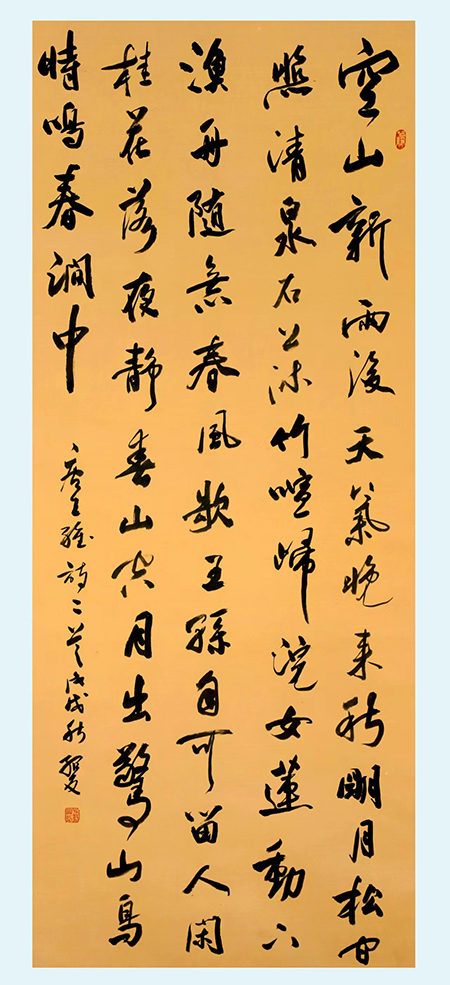 空山新雨後天氣晚来秋明月松间
照清泉石上流竹喧歸浣女蓮動下
漁舟随意春風歇王孫自可留人闲
桂花落夜静春山空月出驚山鳥
時鳴春澗中
唐王維詩二首戊戌秋